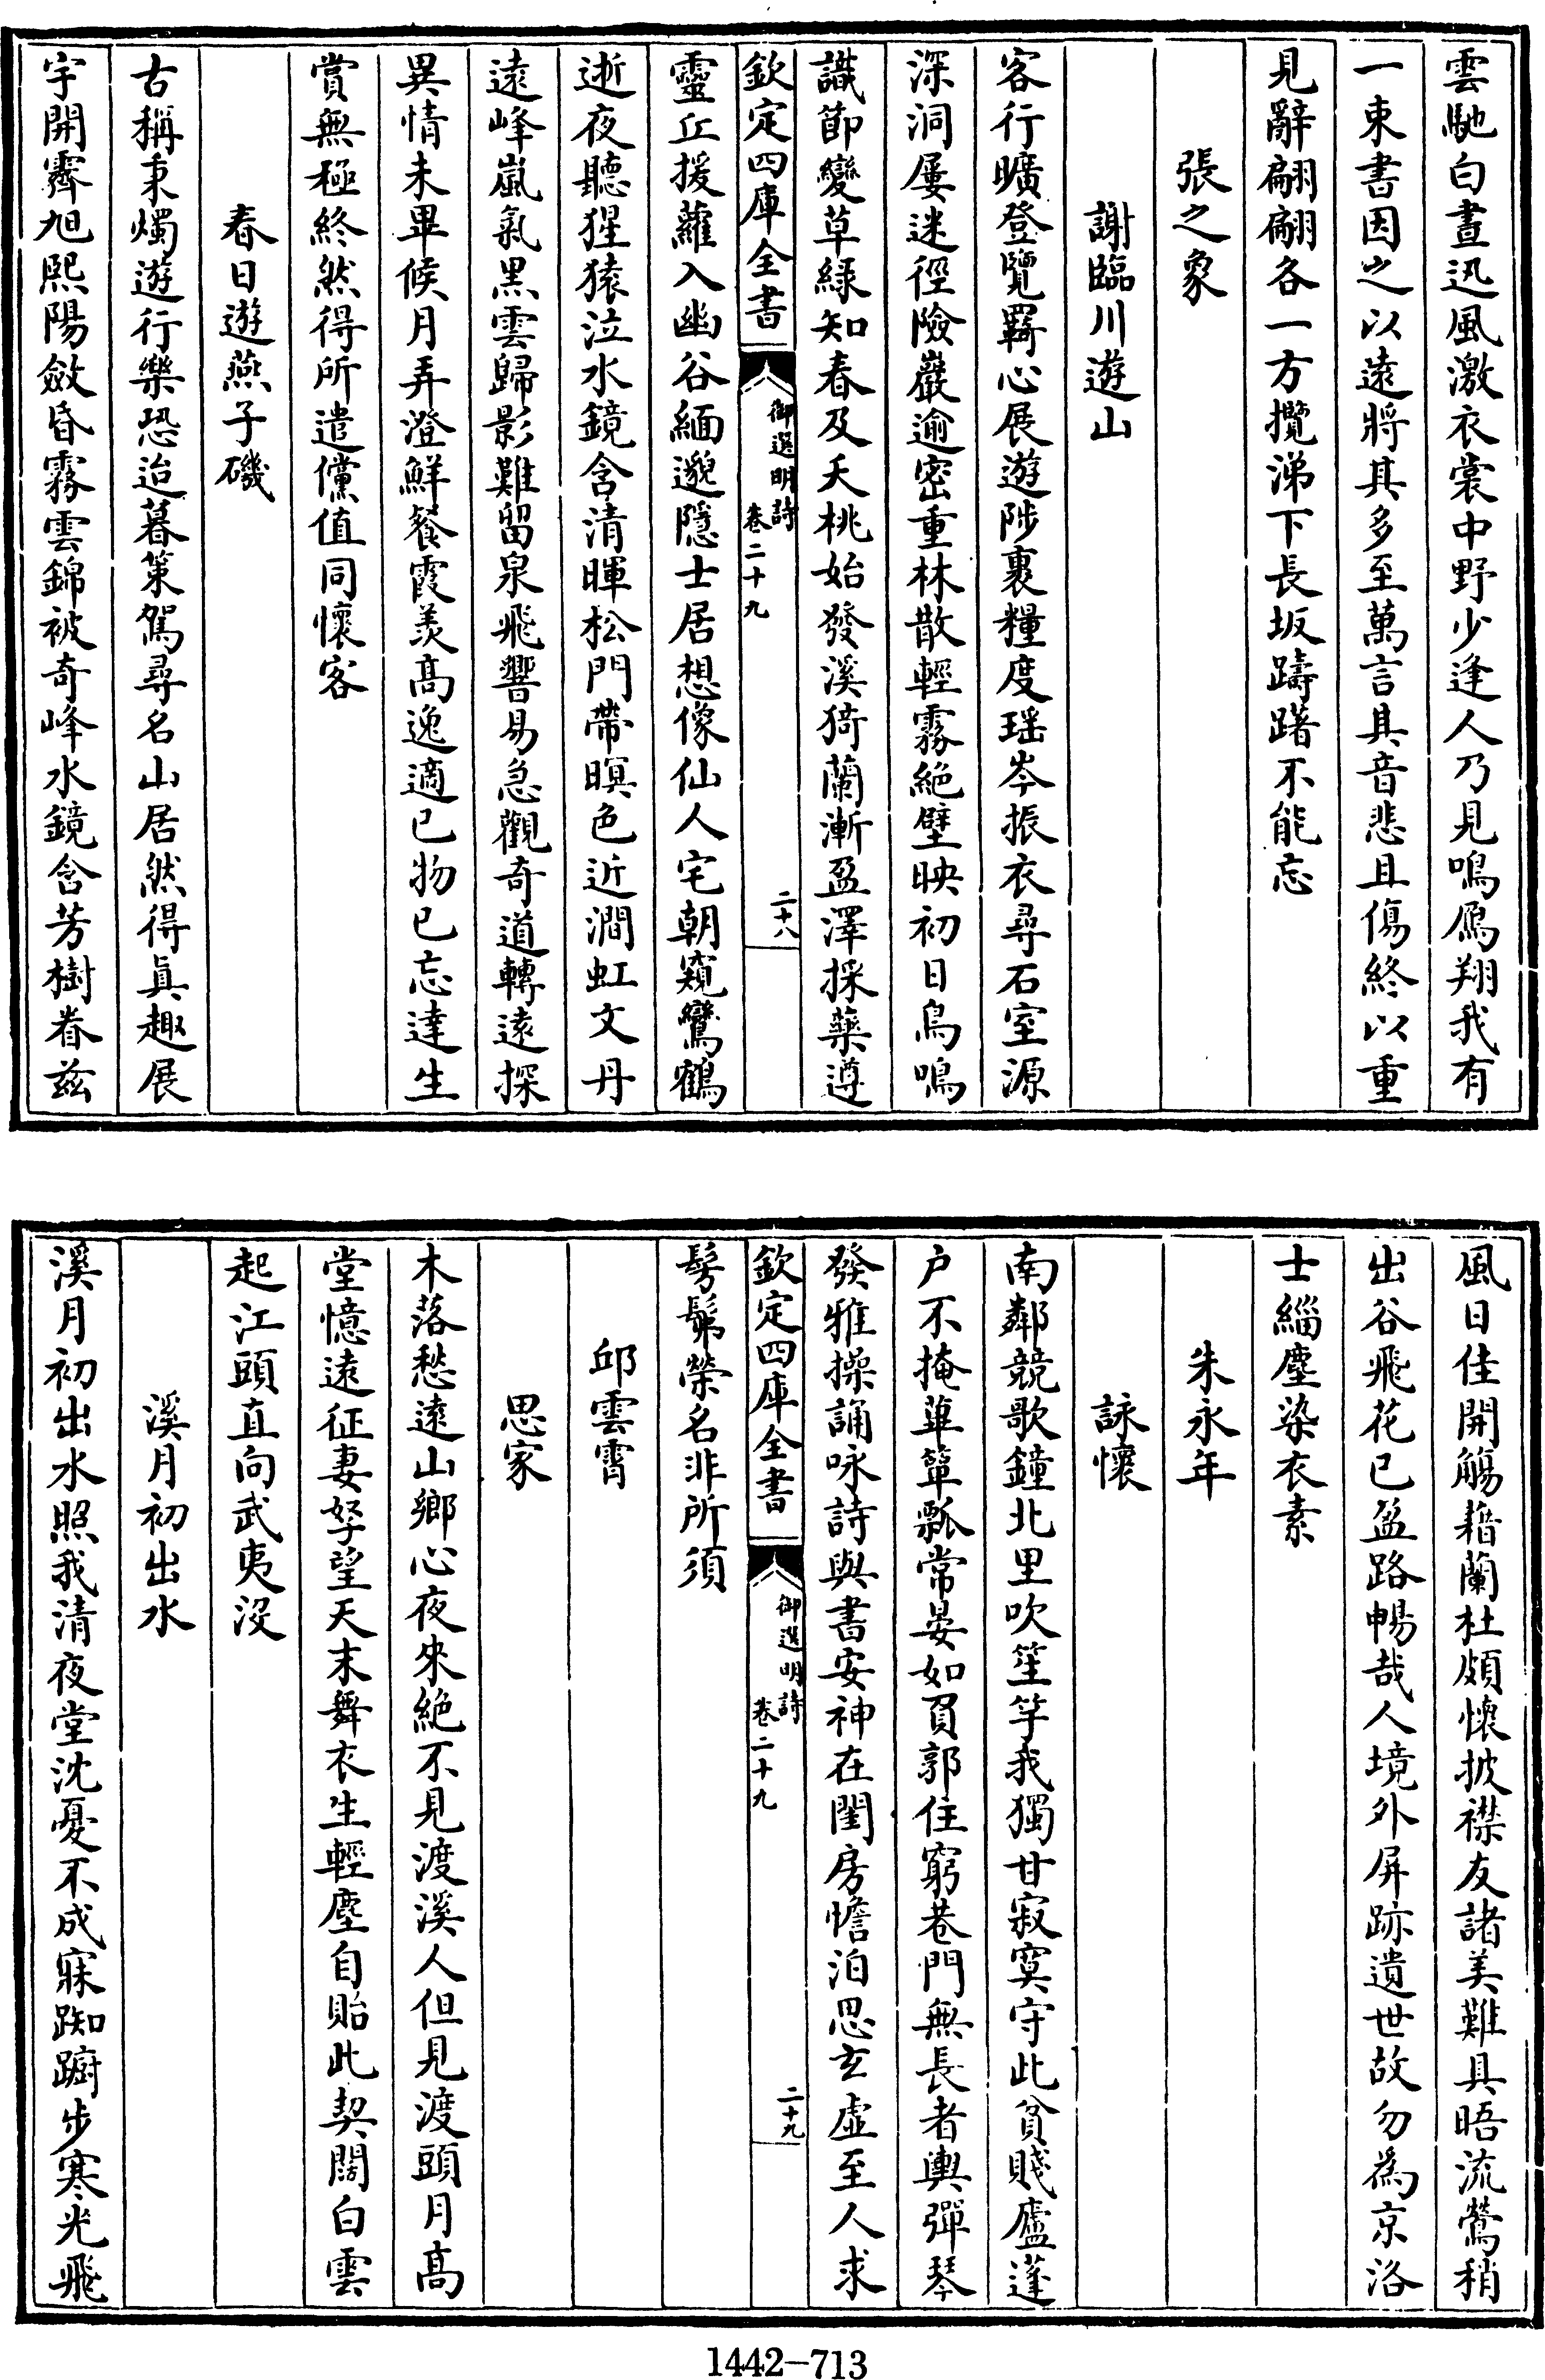 雲馳白晝迅風激衣裳中野少逢人乃見鳴鴈翔我有
一束書因之以遠將其多至萬言其音悲且傷終以重
見辭翩翩各一方攬涕下長坂躊躇不能忘
張之象
謝臨川遊山
客行曠登覽羈心展遊陟裹糧度瑶岑振衣尋石室源
深洞屢迷徑險巖逾密重林散輕霧絶壁映初日鳥鳴
識節變草緑知春及夭桃始發溪猗蘭漸盈澤採藥遵
欽定四庫全書
御選明詩
卷二十九
二十八
靈丘援蘿入幽谷緬邈隱士居想像仙人宅朝窺鸞鶴
逝夜聽猩猿泣水鏡含清暉松門帶暝色近澗虹文丹
遠峰嵐氣黒雲歸影難留泉飛響易急觀奇道轉遠探
異情未畢候月弄澄鮮餐霞羨髙逸適已物已忘達生
賞無極終然得所遣儻值同懷客
春日遊燕子磯
古稱秉燭遊行樂恐迨暮策駕尋名山居然得眞趣展
宇開霽旭熙陽斂昏霧雲錦被奇峰水鏡含芳樹眷兹
風日佳開觴藉蘭杜頗懷披襟友諸美難具晤流鶯稍
出谷飛花已盈路暢哉人境外屏跡遺世故勿爲京洛
士緇塵染衣素
朱永年
詠懷
南鄰競歌鐘北里吹笙竽我獨甘寂寞守此貧賤廬蓬
户不掩蓽簞瓢常晏如負郭住窮巷門無長者輿彈琴
發雅操誦咏詩與書安神在閨房憺泊思玄虛至人求
欽定四庫全書
御選明詩
卷二十九
二十九
髣髴榮名非所須
邱雲霄
思家
木落愁遠山鄉心夜來絶不見渡溪人但見渡頭月髙
堂憶遠征妻孥望天末舞衣生輕塵自貽此契闊白雲
起江頭直向武夷沒
溪月初出水
溪月初出水照我清夜堂沈憂不成寐踟躕步寒光飛
1442-713